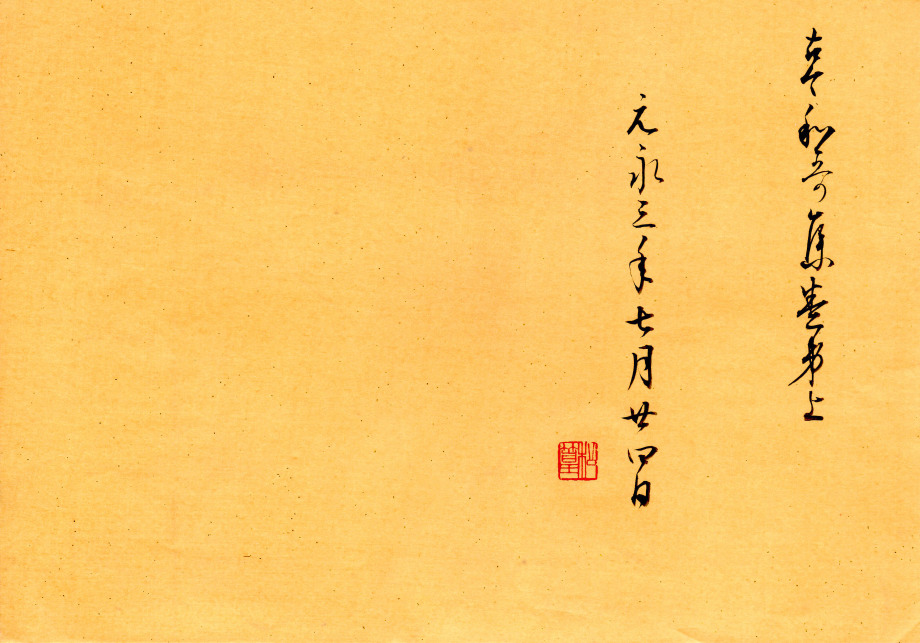 古今和哥集巻第上
元永三年七月廿四日